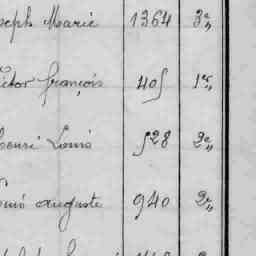 seph Marie 1364 3e„
ictor françois 405 1er„
enri Louis 528 2e„
ouis auguste 940 2e„